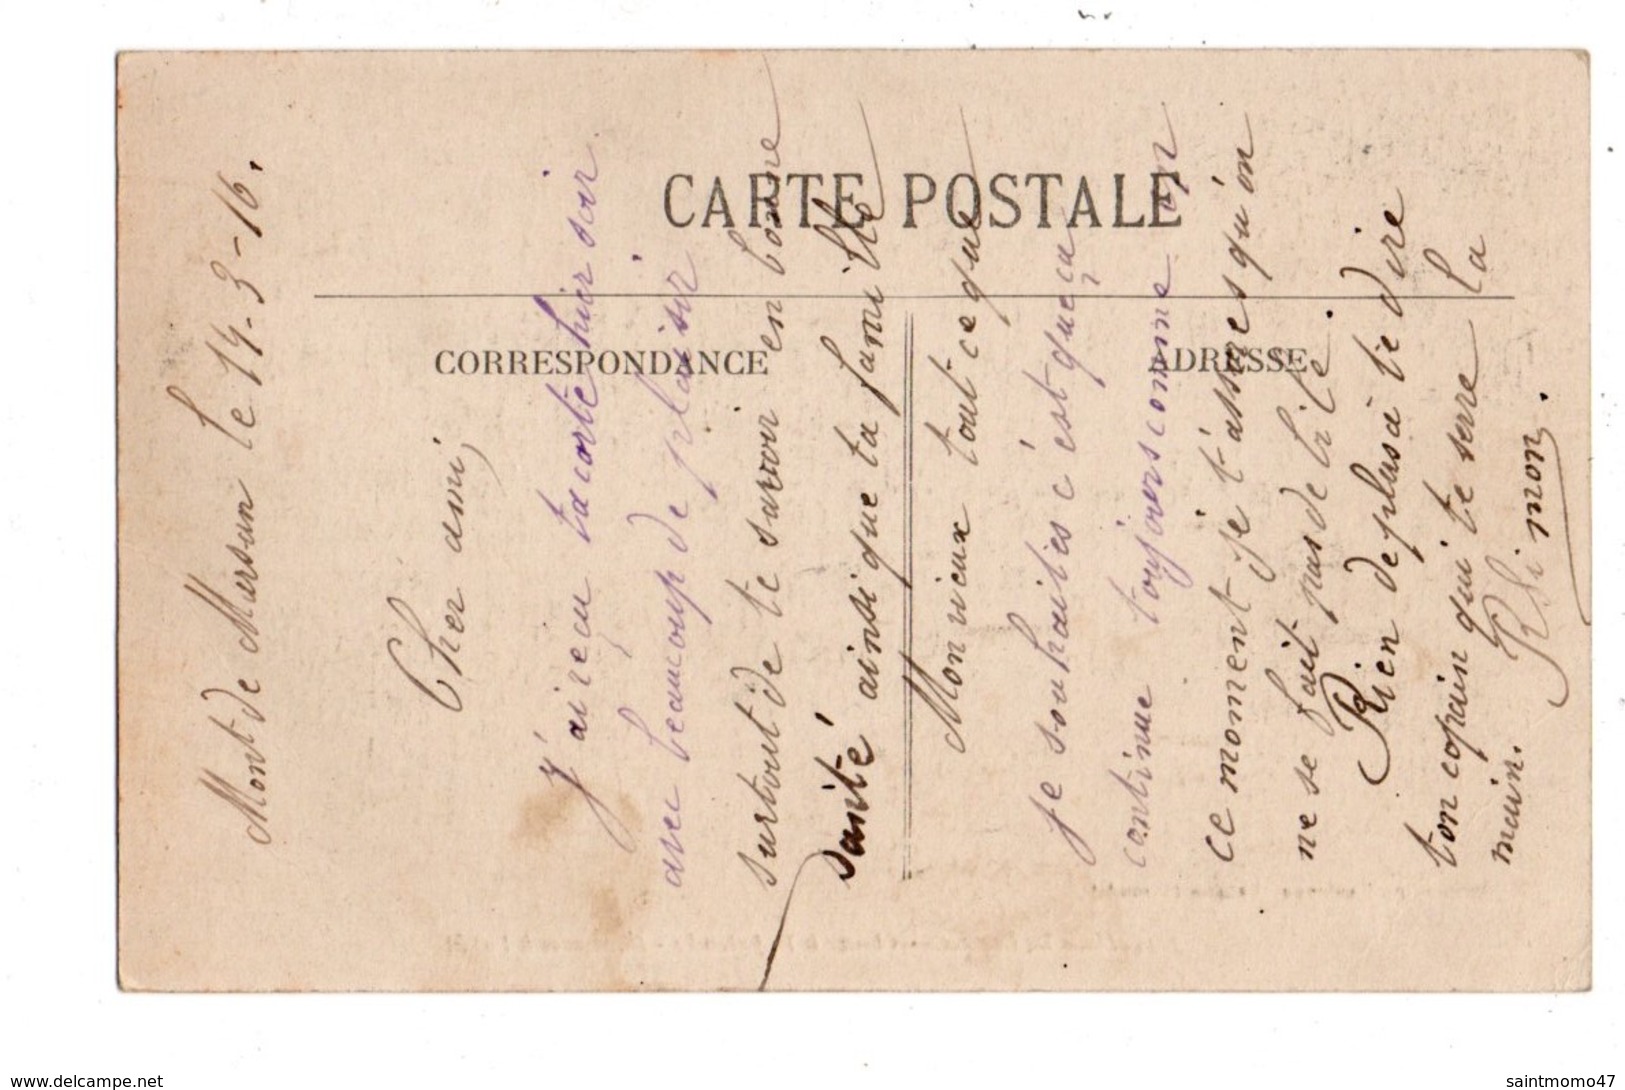 CARTE POSTALE
CORRESPONDANCE
ADRESSE
Mont de Marsan le 14-3-16.
Cher ami,
j'ai reçu ta carte hier soir
avec beaucoup de plaisir
surtout de te savoir en bonne
santé ainsi que ta famille
Mon vieux tout ce que
je souhaites c'est que ça
continue toujours comme on
ce moment je t'assures qu'on
ne se fait pas de bile.
Rien de plus à te dire
ton copain qui te serre la
main. Simon.
www.delcampe.net
saintmomo47